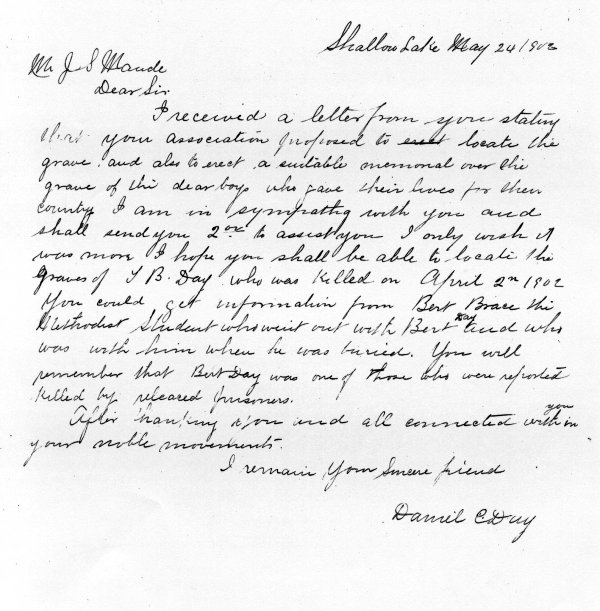 Shallow Lake May 24/1902
Mr J. S Maude
Dear Sir
I received a letter from you stating
that your association proposed to erect locate the
grave. and also to erect a suitable memorial over the
grave of the dear boys who gave their lives for their
country I am in sympathy with you and
shall send you 2.00 to assist you I only wish it
was more I hope you shall be able to locate the
graves of T B. Day who was killed on April 2nd 1902
You could get information from Bert Brace the
Methodist Student who went out with Bert Day and who
was with him when he was buried. You will
remember that Bert Day was one of those who were reported
killed by released prisoners.
After thanking you and all connected with you in
your noble movements.
I remain Your Sincere friend
Daniel C Day